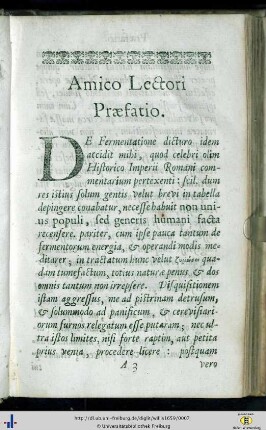 Amico Lectori
Præfatio.
DE Fermentatione dicturo idem
accidit mihi, quod celebri olim
Historico Imperii Romani com-
mentarium pertexenti: scil. dum
res istius solum gentis velut brevi in tabella
depingere conabatur, necesse habuit non uni-
us populi, sed generis humani facta
recensere. pariter, cum ipse pauca tantum de
fermentorum energia, & operandi modis me-
ditarer; in tractatum hunc velut quo-
dam tumefactum, totius naturæ penus, &
omnis tantum non irrepsere. Disquisitionem
istam aggressus, me ad pistrinam detrusum,
& solummodo ad panificum, & cerevisiari-
orum furnos relegatum esse putaram; nec ul-
tra istos limites, nisi forte raptim, aut petita
prius venia, procedere licere: postquam
A 3
vero
http://dl.ub.uni-freiburg.de/diglit/willis1659/0007
© Universitätsbibliothek Freiburg